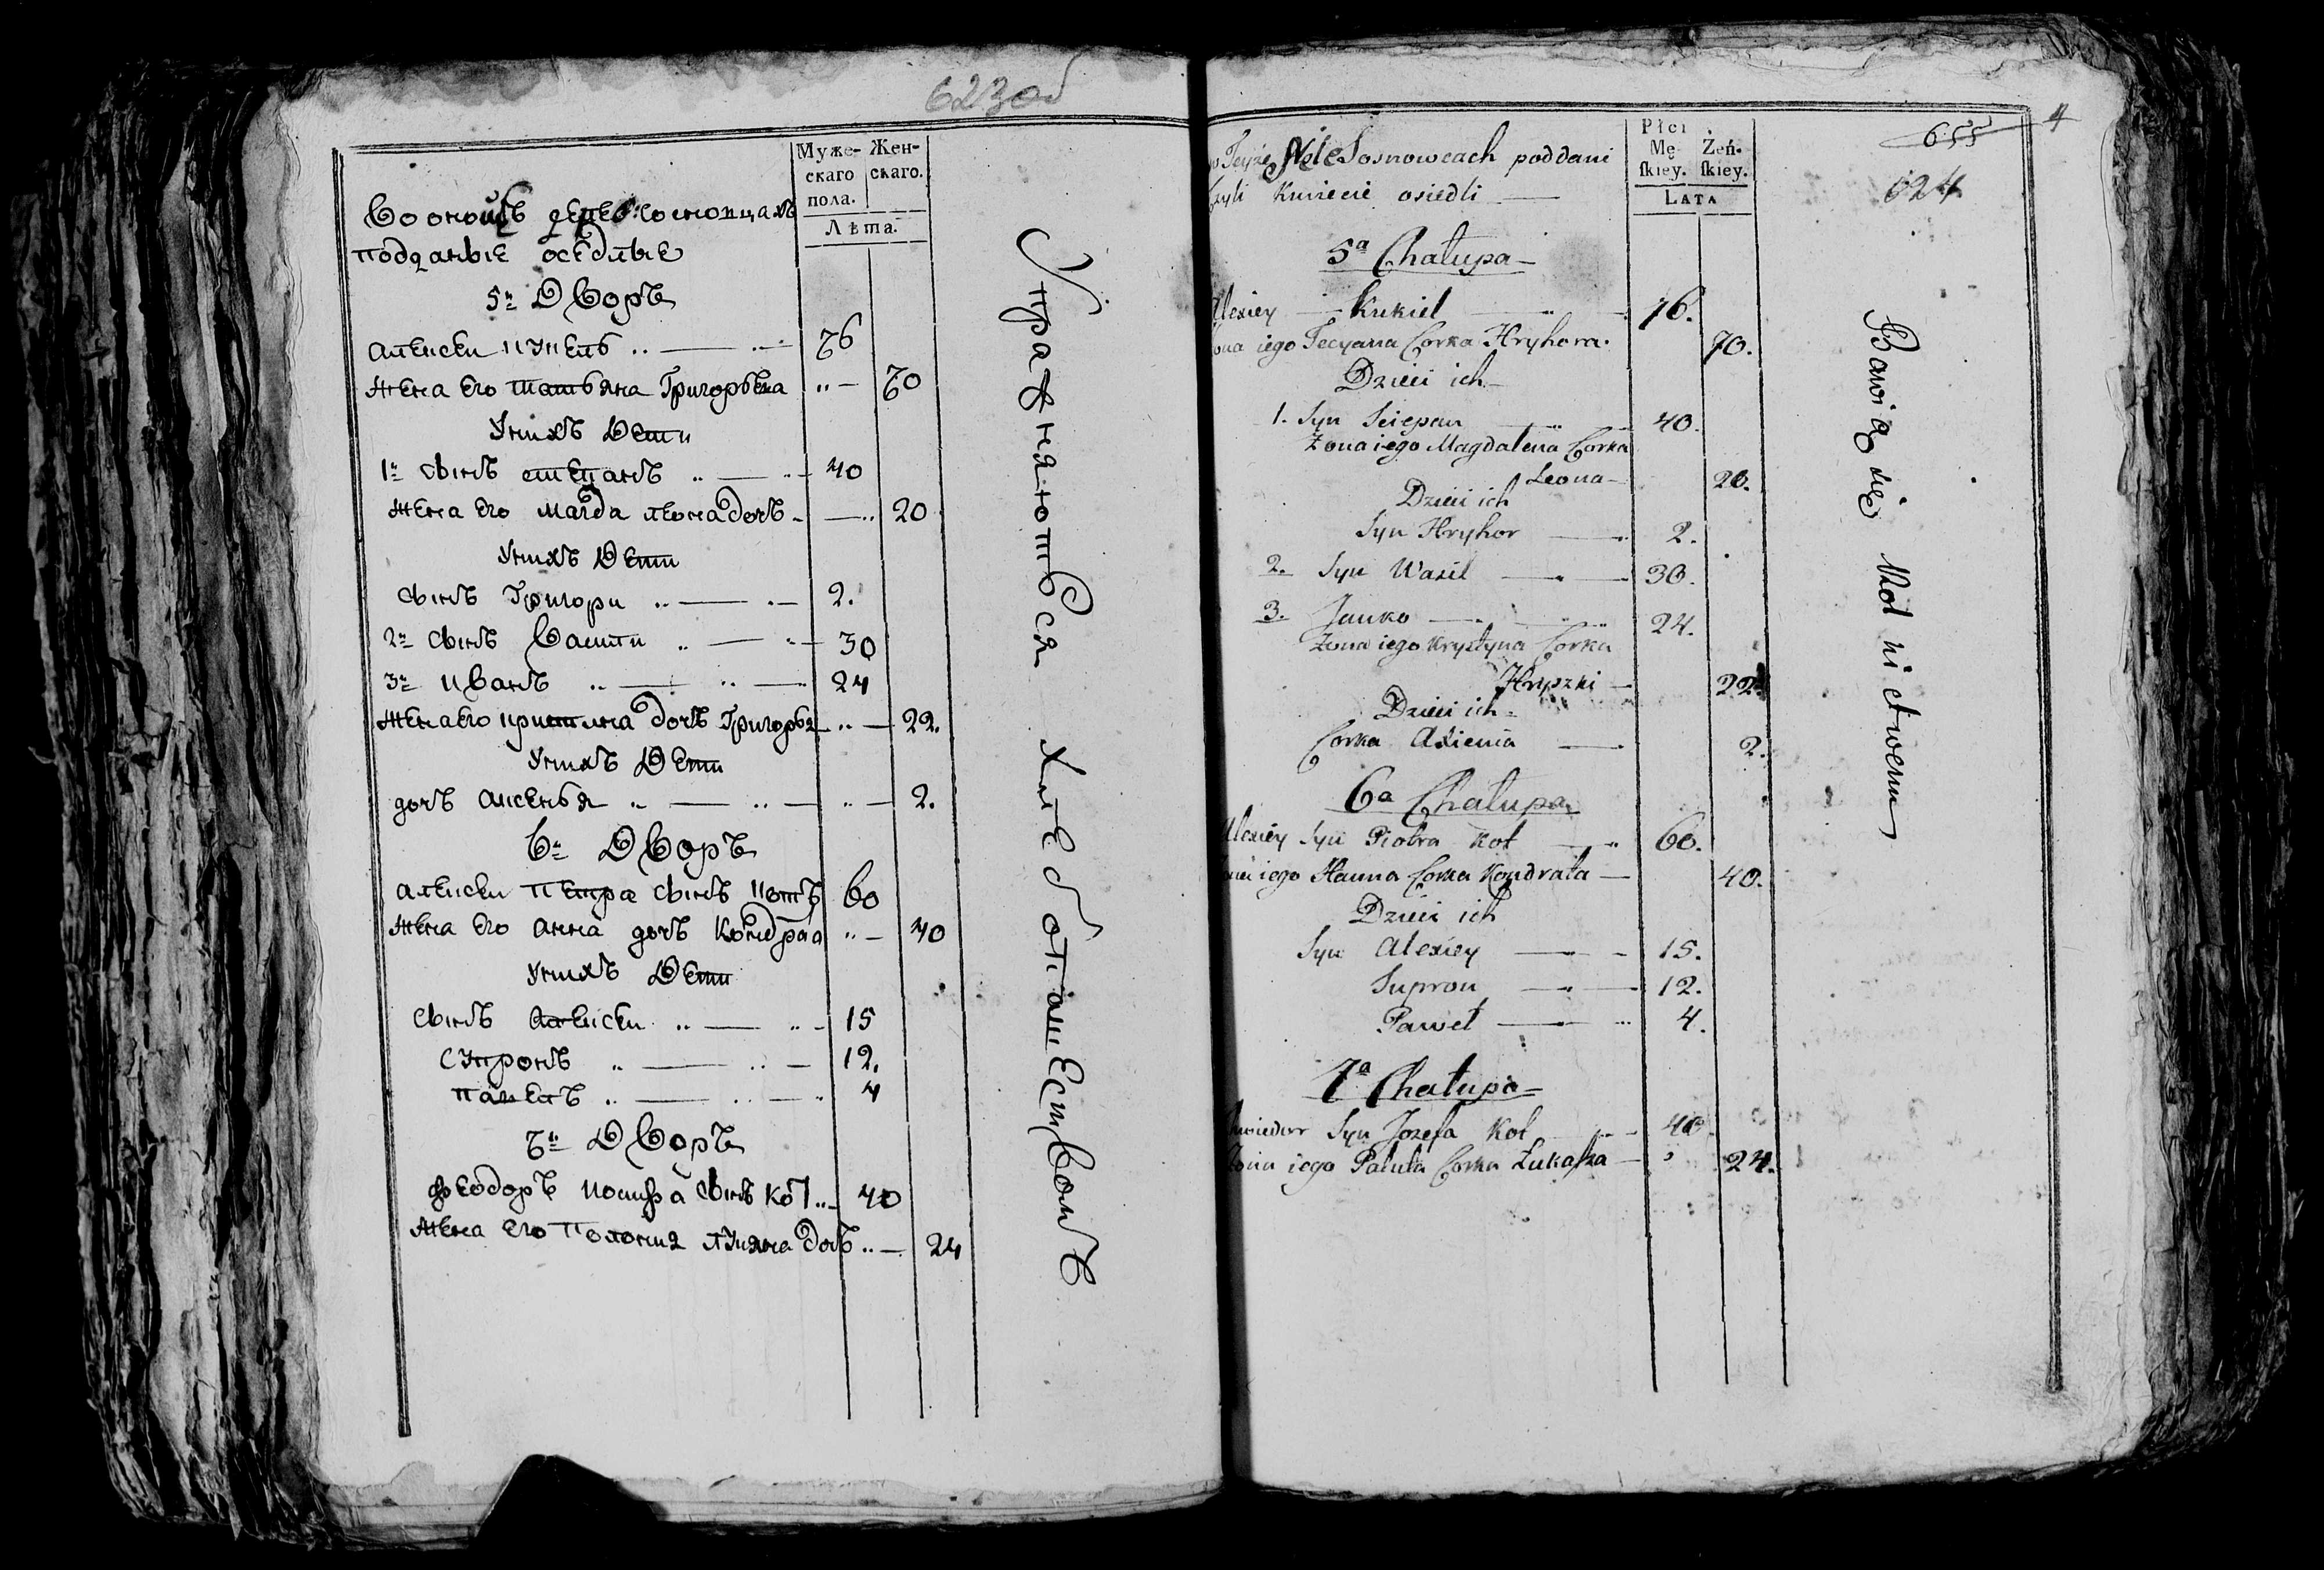 623 об
Муже-
скаго
пола.
Жен-
скаго.
Лѣта.
Во оной деревне Сосновцахъ
подданые оседлые
5й Дворъ
Алексеи Кукель .. — .. 76
Жена его Татьяна Григорьева .. — 70
У нихъ Дети
1й сынъ степанъ .. — .. — 40
Жена его Магда леона дочь — .. 20
У нихъ Дети
сынъ Григори .. — .. — 2.
2й сынъ Васили .. — .. — 30
3й Иванъ .. — .. — 24
Жена его кристина дочь Григорья .. — 22.
У нихъ Дети
дочь Аксенья .. — .. — .. — 2.
6й Дворъ
Алексеи Петра сынъ Котъ 60
Жена его Анна дочь Кондрата .. — 40
У нихъ Дети
сынъ Алексеи .. — .. — 15
Супронъ .. — .. — 12.
Павелъ .. — .. — .. 4
7й Дворъ
Феодоръ Иосифа сынъ Кот .. 40
Жена его Полония дочь .. — 24
Упражняются хлебопашествомъ
655
4
624
Płci
Mę-
ſkiey.
Żeń-
ſkiey.
LATA
Teyże Wsie Sosnowcach poddani
Czyli Kmiecie osiedli —
5ª Chałupa —
Alexiey — Kukiel — 76.
Żona iego Tecyana Corka Hryhora. 70.
Dzieci ich —
1. Syn Sciepan — 40.
Żona iego Magdalena Corka
Leona — 20.
Dzieci ich
Syn Hryhor — 2.
2. Syn Wasil — 30.
3. Janko — 24.
Żona iego Krystyna Corka
Hryszki — 22.
Dzieci ich —
Corka Axienia — 2.
6ª Chałupa
Alexiey Syn Piotra Kot — 60.
Żona iego Hanna Corka Kondrata — 40.
Dzieci ich
Syn Alexiey — 15.
Supron — 12.
Paweł — 4.
7ª Chałupa —
Chwiedor Syn Jozefa Kot — 40
Żona iego Pałuta Corka Łukaſza — 24.
Bawią się Rolnictwem